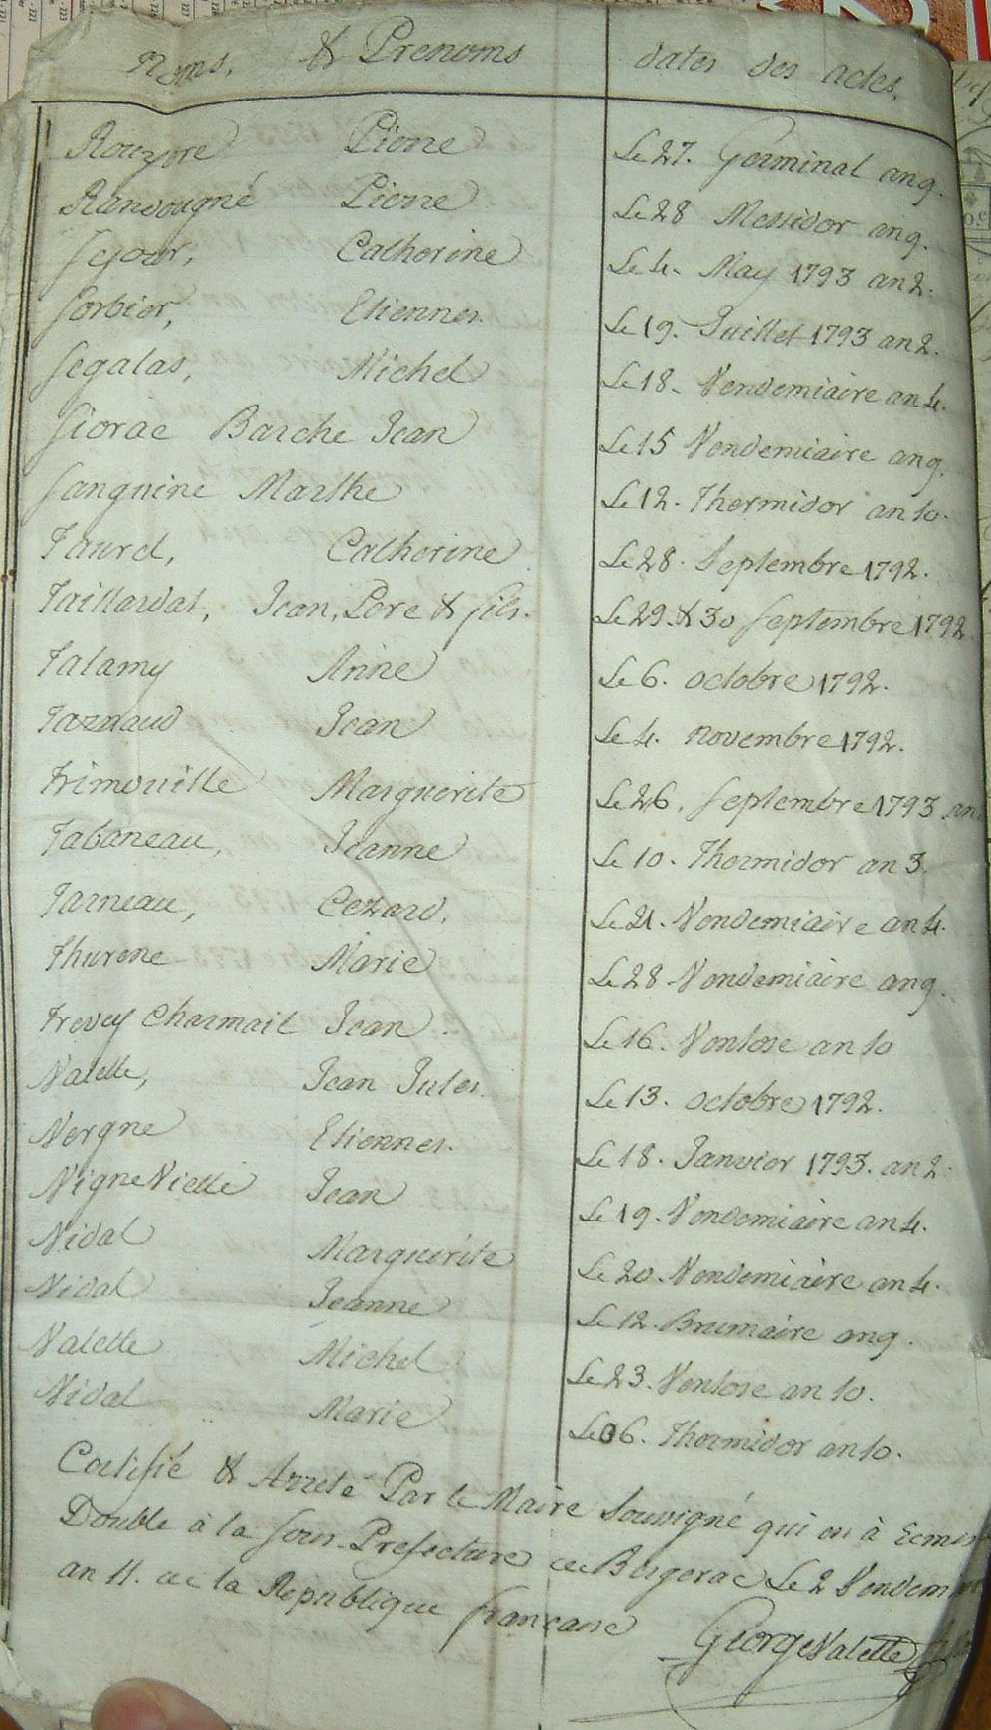 Noms, & Prenoms dates des actes,
Rouzore Pierre Le 27. Germinal an 9.
Randougné Pierre Le 28 Messidor an 9.
Sejour, Catherine Le 4. May 1793 an 2.
Sorbier, Etienne. Le 19. Juillet 1793 an 2.
Segalas, Michel Le 18. Vendemiaire an 4.
Siorac Barche Jean Le 15 Vendemiaire an 9.
Sanguine Marthe Le 12. Thermidor an 10.
Catherine Le 28. Septembre 1792.
Taillardat, Jean, Pere & fils. Le 29. & 30 Septembre 1792
Talamy Anne Le 6. octobre 1792.
Taznaud Jean Le 4. novembre 1792.
Trimouille Marguerite Le 26. Septembre 1793 an
Tabaneau, Jeanne Le 10. Thermidor an 3.
Tarneau, Cezard. Le 21. Vendemiaire an 4.
Thurene Marie Le 28 Vendemiaire an 9.
Trevey Charmail Jean. Le 16. Ventose an 10
Valette, Jean Jules. Le 13. octobre 1792.
Vergne Etienne. Le 18. Janvier 1793. an 2.
Vigne Vielle Jean Le 19. Vendemiaire an 4.
Vidal Marguerite Le 20. Vendemiaire an 4.
Vidal Jeanne Le 12. Brumaire an 9.
Valette Michel Le 23. Ventose an 10.
Vidal Marie Le 06. Thermidor an 10.
Certifié & Arreté Par le Maire Soussigné qui en à
Double à la Sous-Prefecture de Bergerac Le 2 Vendem
an 11. de la Republique francaise
George Valette